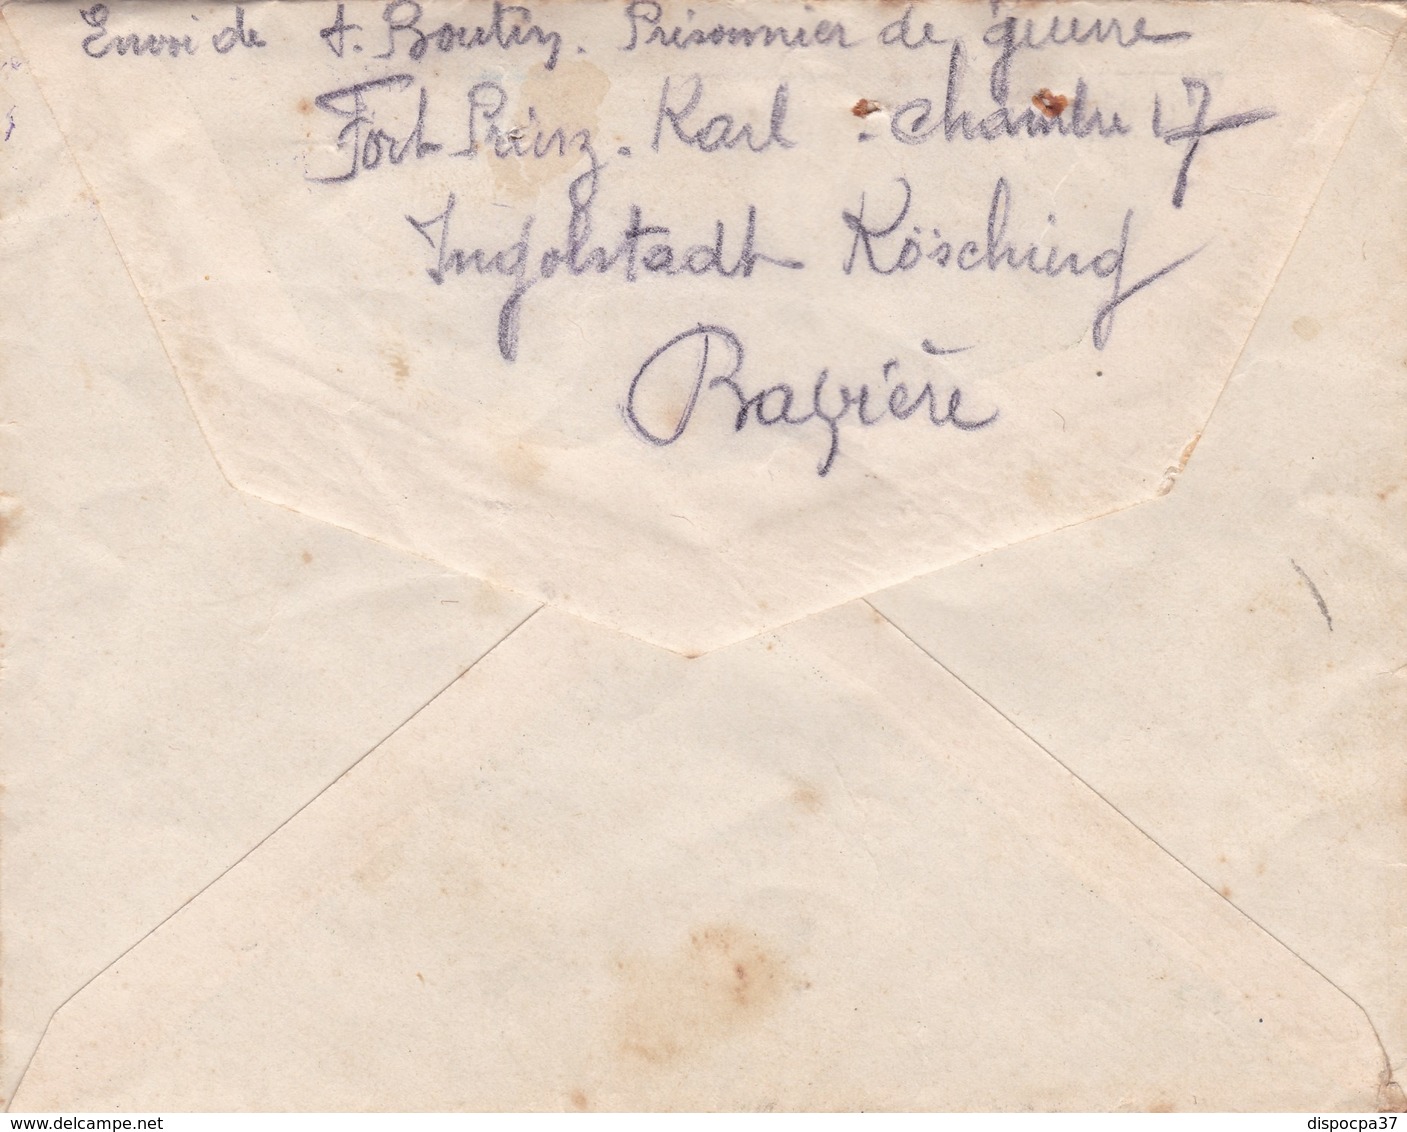 Envoi de A. Boutin. Prisonnier de guerre
Fort Prinz. Karl - chambre 17
Ingolstadt Kösching
Bayière
dispocpa37